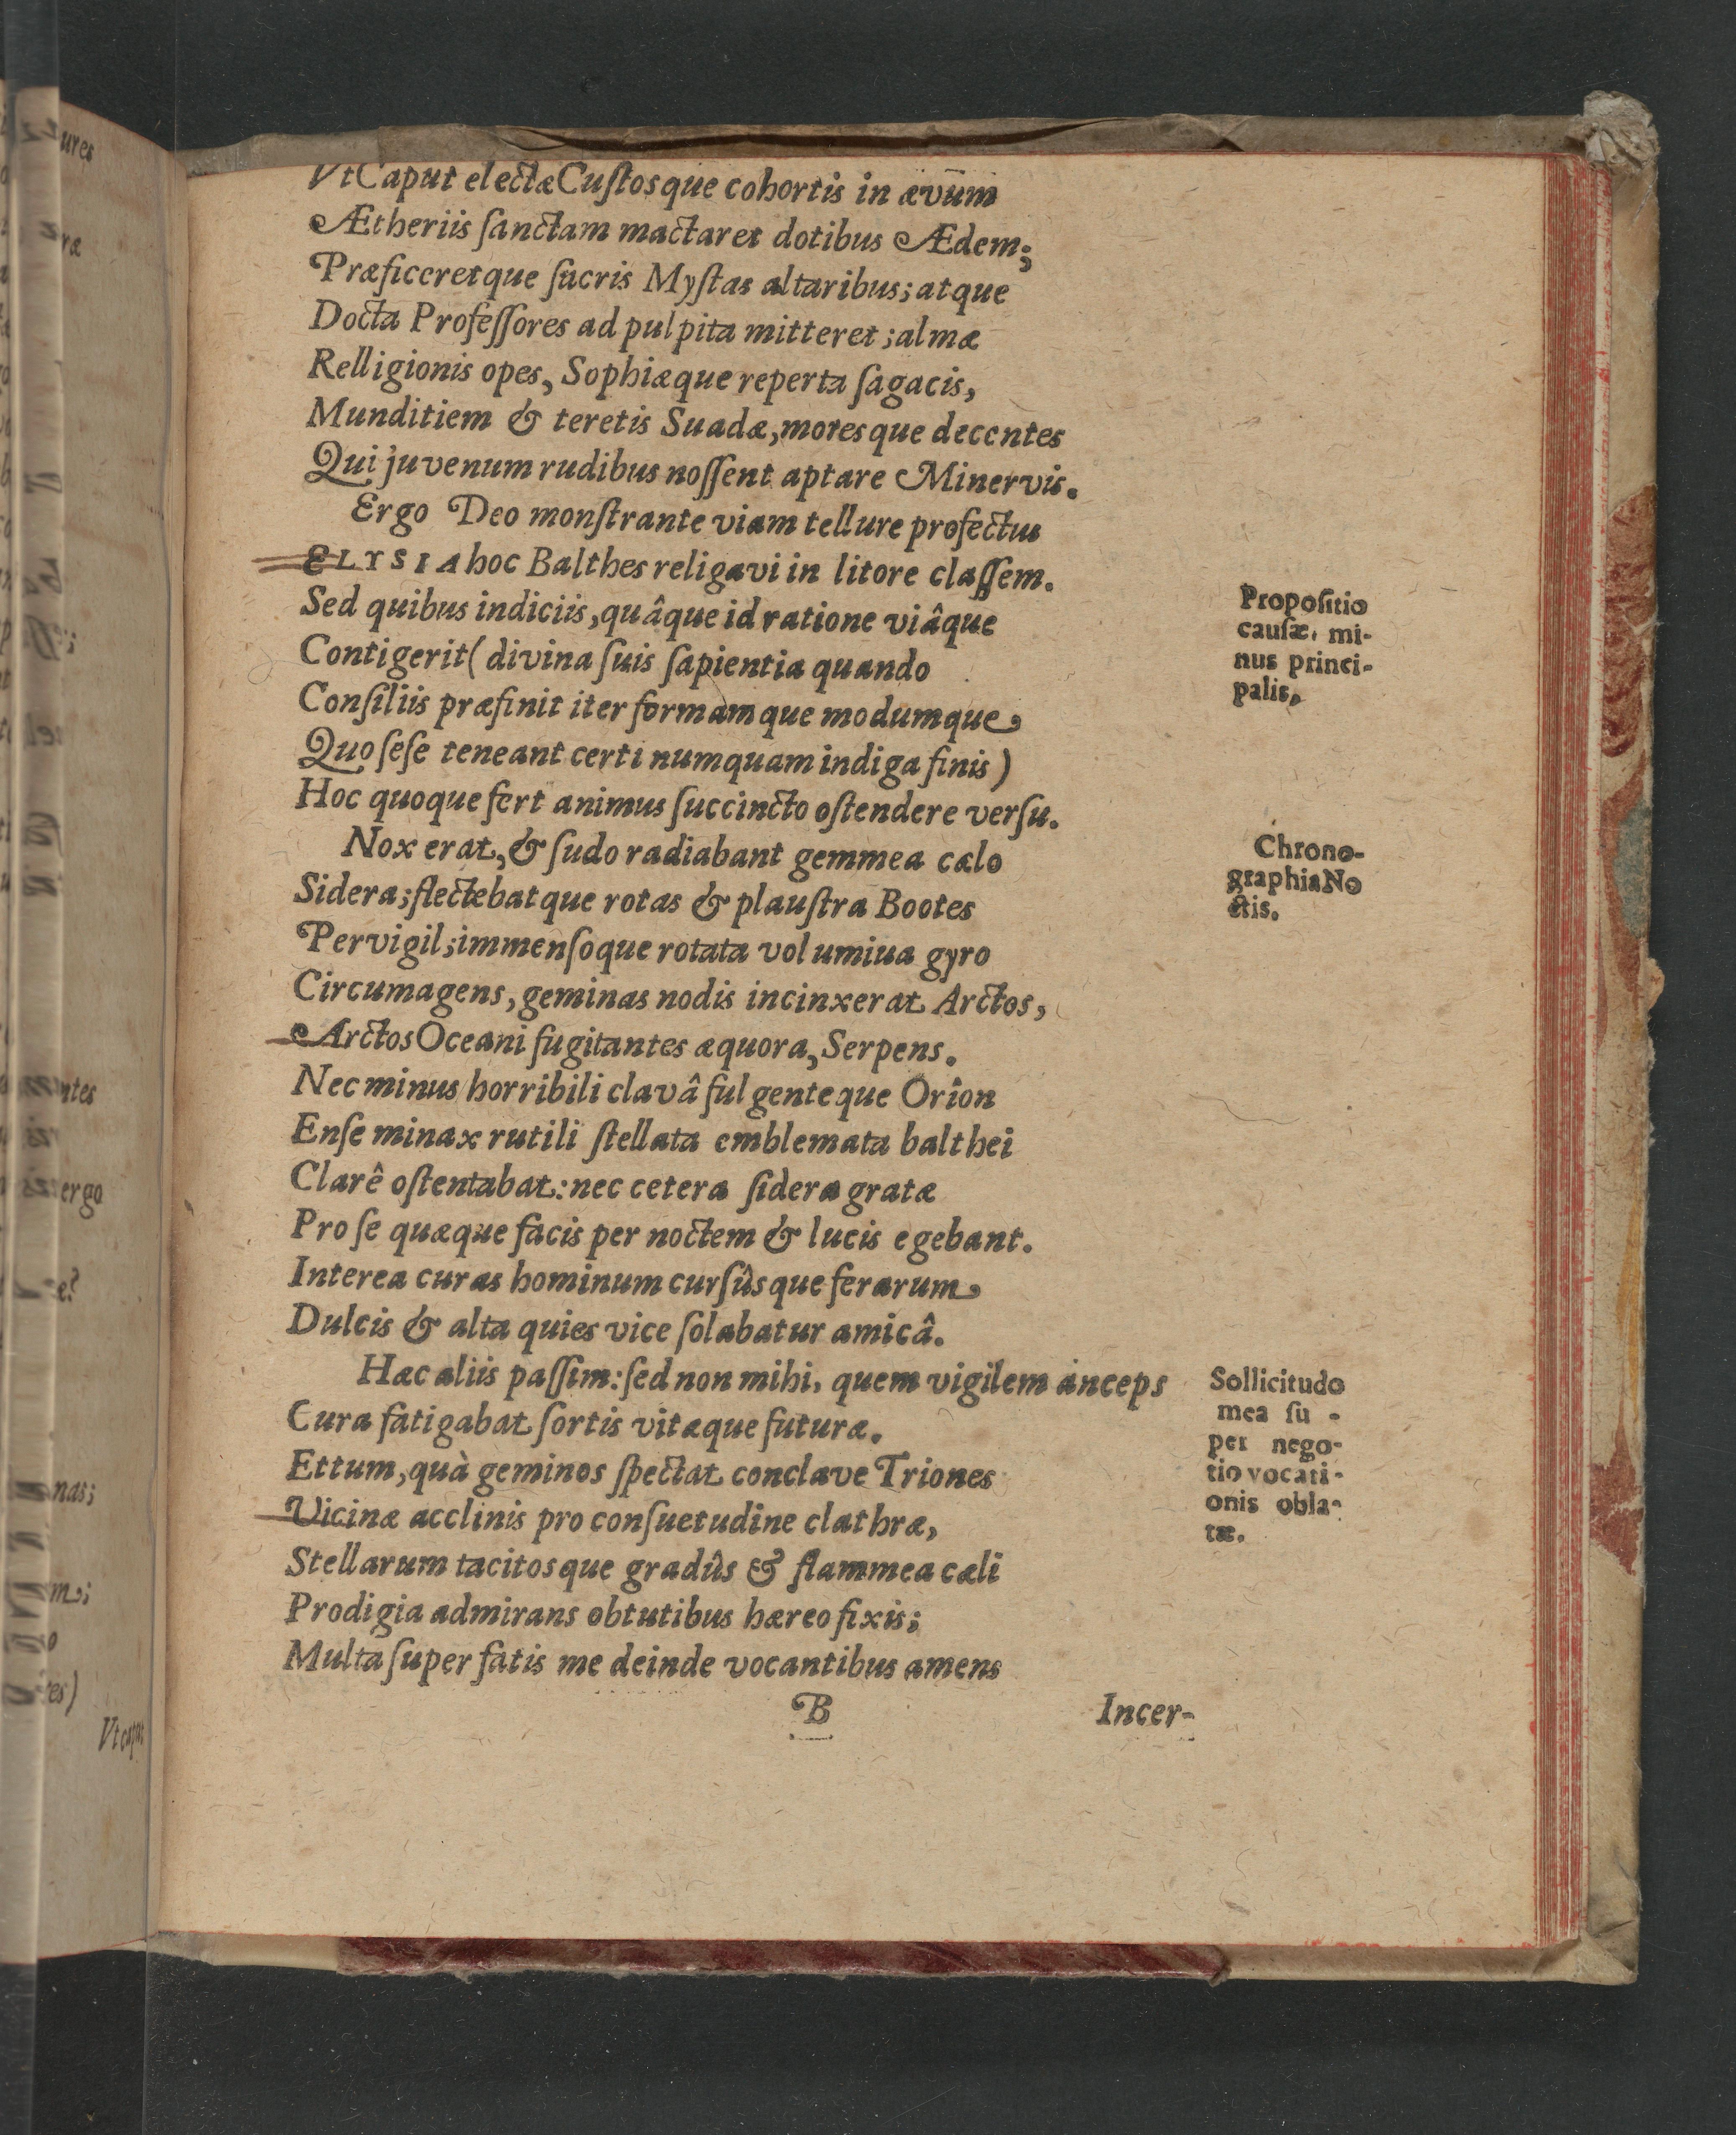 Vt Caput electæ Cuſtosque cohortis in ævum
Ætheriis ſanctam mactaret dotibus Ædem;
Præficeretque ſacris Myſtas altaribus; atque
Docta Profeſſores ad pulpita mitteret; almæ
Relligionis opes, Sophiæque reperta ſagacis,
Munditiem & teretis Suadæ, moresque decentes
Qui juvenum rudibus noſſent aptare Minervis.
Ergo Deo monſtrante viam tellure profectus
ELYSIA hoc Balthes religavi in litore claſſem.
Sed quibus indiciis, quâque id ratione viâque
Contigerit (divina ſuis ſapientia quando
Conſiliis præfinit iter formamque modumque
Quo ſeſe teneant certi numquam indiga finis)
Hoc quoque fert animus ſuccincto oſtendere verſu.
Propoſitio
cauſæ, mi-
nus princi-
palis.
Nox erat, & ſudo radiabant gemmea cælo
Sidera; flectebatque rotas & plauſtra Bootes
Pervigil; immenſoque rotata volumiua gyro
Circumagens, geminas nodis incinxerat Arctos,
Arctos Oceani fugitantes æquora, Serpens.
Nec minus horribili clavâ fulgenteque Orion
Enſe minax rutili ſtellata emblemata balthei
Clarê oſtentabat: nec cetera ſidera gratæ
Pro ſe quæque facis per noctem & lucis egebant.
Interea curas hominum curſûsque ferarum
Dulcis & alta quies vice ſolabatur amicâ.
Chrono-
graphia No
ctis.
Hæc aliis paſſim: ſed non mihi, quem vigilem anceps
Cura fatigabat ſortis vitæque futuræ.
Et tum, quà geminos ſpectat conclave Triones
Vicinæ acclinis pro conſuetudine clathræ,
Stellarum tacitosque gradûs & flammea cæli
Prodigia admirans obtutibus hæreo fixis;
Multa ſuper fatis me deinde vocantibus amens
Sollicitudo
mea ſu -
per nego-
tio vocati-
onis obla-
tæ.
B
Incer-
ures
ræ
ntes
ergo
e?
nas;
m;
o
es)
Vt caput